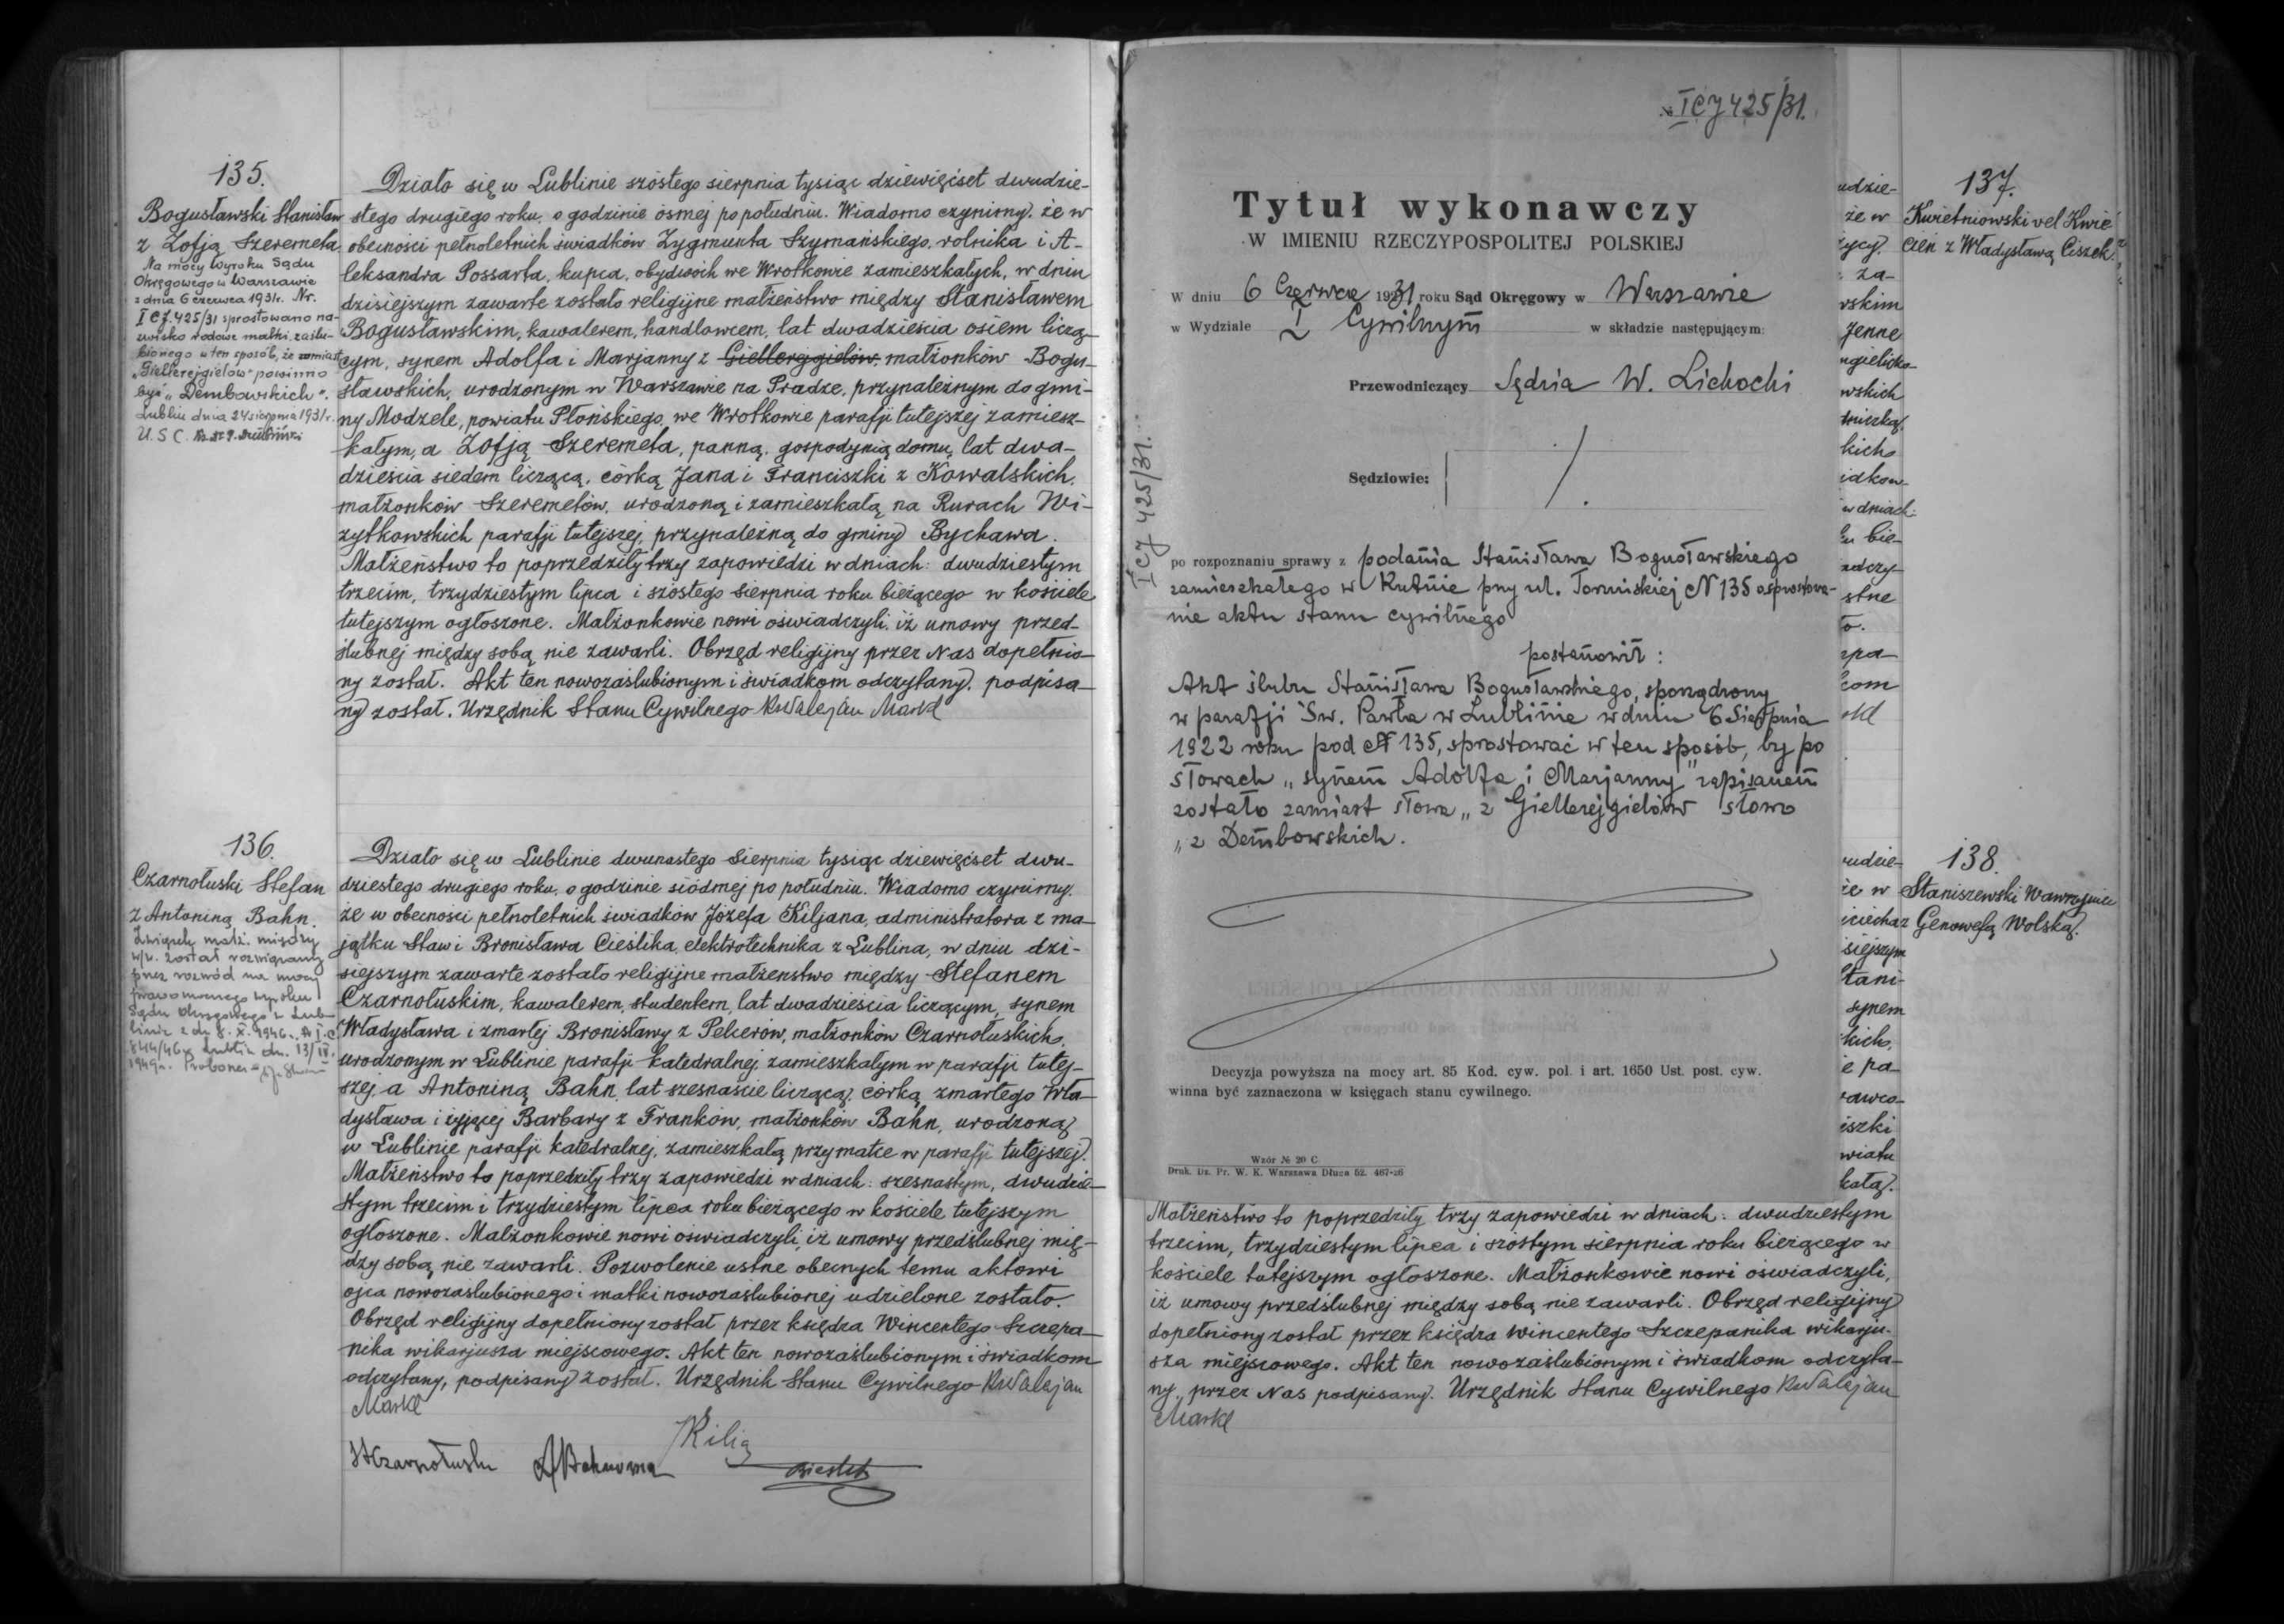 135.
Bogusławski Stanisław
z Zofją Szeremeta
Na mocy wyroku Sądu
Okręgowego w Warszawie
z dnia 6 czerwca 1931r. Nr.
I C J. 425/31 sprostowano na-
zwisko rodowe matki zaślu-
bionego w ten sposób, że zamiast
"Giellerejgielów" powinno
być "Dembowskich".
Lublin dnia 24 sierpnia 1931r.
U. S. C.
Działo się w Lublinie szóstego sierpnia tysiąc dziewięćset dwudzie-
stego drugiego roku, o godzinie ósmej po południu. Wiadomo czynimy, że w
obecności pełnoletnich świadków Zygmunta Szymańskiego, rolnika i A-
leksandra Possarta, kupca, obydwóch we Wrotkowie zamieszkałych, w dniu
dzisiejszym zawarte zostało religijne małżeństwo między Stanisławem
Bogusławskim, kawalerem, handlowcem, lat dwadzieścia osiem liczą-
cym, synem Adolfa i Marjanny z Giellerejgielów, małżonków Bogu-
sławskich, urodzonym w Warszawie na Pradze, przynależnym do gmi-
ny Modzele, powiatu Płońskiego, we Wrotkowie parafji tutejszej zamiesz-
kałym, a Zofją Szeremeta, panną, gospodynią domu, lat dwa-
dzieścia siedem liczącą, córką Jana i Franciszki z Kowalskich,
małżonków Szeremetów, urodzoną i zamieszkałą na Rurach Wi-
zytkowskich parafji tutejszej, przynależną do gminy Bychawa.
Małżeństwo to poprzedziły trzy zapowiedzi w dniach: dwudziestym
trzecim, trzydziestym lipca i szóstego sierpnia roku bieżącego w kościele
tutejszym ogłoszone. Małżonkowie nowi oświadczyli, iż umowy przed-
ślubnej między sobą nie zawarli. Obrzęd religijny przez Nas dopełnio-
ny został. Akt ten nowozaślubionym i świadkom odczytany, podpisa-
ny został. Urzędnik Stanu Cywilnego
136.
Czarnołuski Stefan
z Antoniną Bahn.
Związek małż. między
w/w. został rozwiązany
przez rozwód na mocy
prawomocnego wyroku
Sądu Okręgowego w Lub-
linie z dn. 8. X. 1946r.
844/46 Lublin dn. 13/IV.
1949r. Proboszcz
Działo się w Lublinie dwunastego sierpnia tysiąc dziewięćset dwu-
dziestego drugiego roku, o godzinie siódmej po południu. Wiadomo czynimy,
że w obecności pełnoletnich świadków Józefa Kiljana, administratora z ma-
jątku Staw i Bronisława Cieślika, elektrotechnika z Lublina, w dniu dzi-
siejszym zawarte zostało religijne małżeństwo między Stefanem
Czarnołuskim, kawalerem, studentem, lat dwadzieścia liczącym, synem
Władysława i zmarłej Bronisławy z Pelcerów, małżonków Czarnołuskich,
urodzonym w Lublinie parafji katedralnej, zamieszkałym w parafji tutej-
szej, a Antoniną Bahn, lat szesnaście liczącą, córką zmarłego Wła-
dysława i żyjącej Barbary z Franków, małżonków Bahn, urodzoną
w Lublinie parafji katedralnej, zamieszkałą przy matce w parafji tutejszej.
Małżeństwo to poprzedziły trzy zapowiedzi w dniach: szesnastym, dwudzie-
stym trzecim i trzydziestym lipca roku bieżącego w kościele tutejszym
ogłoszone. Małżonkowie nowi oświadczyli, iż umowy przedślubnej mię-
dzy sobą nie zawarli. Pozwolenie ustne obecnych temu aktowi
ojca nowozaślubionego i matki nowozaślubionej udzielone zostało.
Obrzęd religijny dopełniony został przez księdza Wincentego Szczepa-
nika wikarjusza miejscowego. Akt ten nowozaślubionym i świadkom
odczytany, podpisany został. Urzędnik Stanu Cywilnego
I C J 425/31.
Tytuł wykonawczy
W IMIENIU RZECZYPOSPOLITEJ POLSKIEJ
W dniu 6 Czerwca 1931 roku Sąd Okręgowy w Warszawie
w Wydziale I Cywilnym w składzie następującym:
Przewodniczący Sędzia W. Lichocki
Sędziowie:
I C J 425/31.
po rozpoznaniu sprawy z podania Stanisława Bogusławskiego
zamieszkałego w Kutnie przy ul. Toruńskiej N 135 o sprostowa-
nie aktu stanu cywilnego
postanowił:
Akt ślubu Stanisława Bogusławskiego, sporządzony
w parafji Św. Pawła w Lublinie w dniu 6 Sierpnia
1922 roku pod N 135, sprostować w ten sposób, by po
słowach "synem Adolfa i Marjanny" zapisanem
zostało zamiast słowa "z Giellerejgielów słowo
"z Dembowskich.
Decyzja powyższa na mocy art. 85 Kod. cyw. pol. i art. 1650 Ust. post. cyw.
winna być zaznaczona w księgach stanu cywilnego.
Wzór № 20 C.
Druk. Dz. Pr. W. K. Warszawa Długa 52. 467-26
Małżeństwo to poprzedziły trzy zapowiedzi w dniach: dwudziestym
trzecim, trzydziestym lipca i szóstym sierpnia roku bieżącego w
kościele tutejszym ogłoszone. Małżonkowie nowi oświadczyli,
iż umowy przedślubnej między sobą nie zawarli. Obrzęd religijny
dopełniony został przez księdza Wincentego Szczepanika wikarju-
sza miejscowego. Akt ten nowozaślubionym i świadkom odczyta-
ny, przez Nas podpisany. Urzędnik Stanu Cywilnego
137.
Kwietniowski vel Kwie-
cień z Władysławą Ciszek.
138.
Staniszewski Wawrzyniec
z Genowefą Wolską.